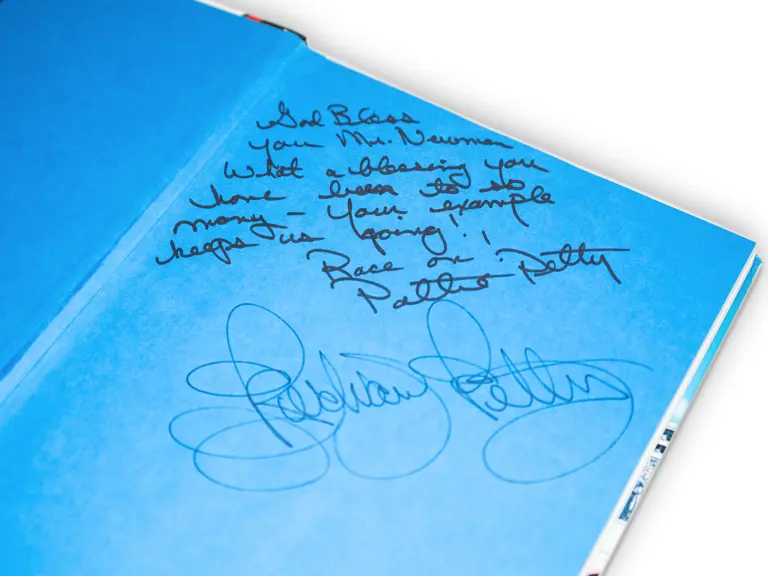 God Bless
you Mr. Newman
What a blessing you
have been to so
many - Your example
keeps us going!!
Race on!
Pattie Petty
Richard Petty